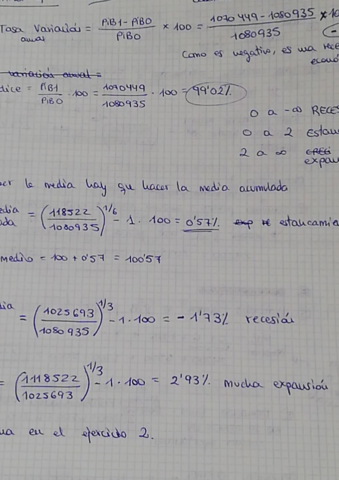 Tasa Variación = PIB1 - PIB0 / PIB0 × 100 = 1070449 - 1080935 / 1080935 × 10
anual
Como es negativo, es una rece
econó
variación anual =
dice = PIB1 / PIB0 · 100 = 1070449 / 1080935 · 100 = 99'02%
0 a -∞ RECES
0 a 2 Estan
2 a ∞ expan
cer la media hay que hacer la media acumulada
edia
ada = (118522 / 1080935)^1/6 - 1 · 100 = 0'57% estancamie
medio = 100 + 0'57 = 100'57
dia
= (1025693 / 1080935)^1/3 - 1 · 100 = - 1'73% recesión
= (1118522 / 1025693)^1/3 - 1 · 100 = 2'93% mucha expansión
ua en el ejercicio 2.